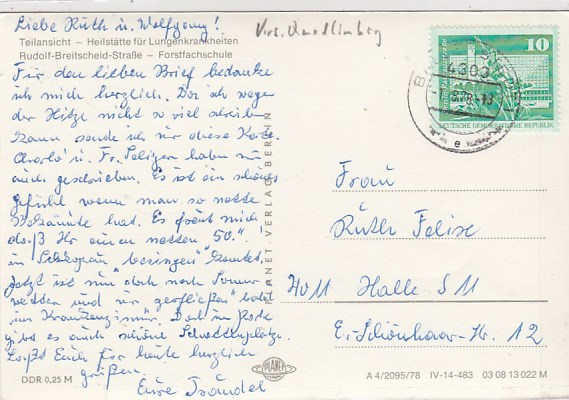 Liebe Ruth u. Wolfgang!
Vors. Quedlinburg
Teilansicht — Heilstätte für Lungenkrankheiten
Rudolf-Breitscheid-Straße – Forstfachschule
Für den lieben Brief bedanke
ich mich herzlich. Da ich wegen
der Hitze nicht so viel schreiben
kann sende ich nur diese Karte
u. Fr. haben mir
auch geschrieben. Es ist ein schönes
Gefühl wenn man so nette
hat. Es freut mich
daß Ihr einen netten "50."
in
Jetzt ist nun doch noch Sommer
wetter und wir "zerfließen" bald
im Krankenzimmer. Doch im Parke
gibt es auch schöne Schattenplätze.
Laßt Euch für heute herzlich
grüßen.
Eure
DDR 0,25 M
PLANET-VERLAG BERLIN
PLANET
10
4303
DEUTSCHE DEMOKRATISCHE REPUBLIK
e
Frau
Ruth Felixe
4011 Halle-S 11
12
A 4/2095/78 IV-14-483 03 08 13 022 M